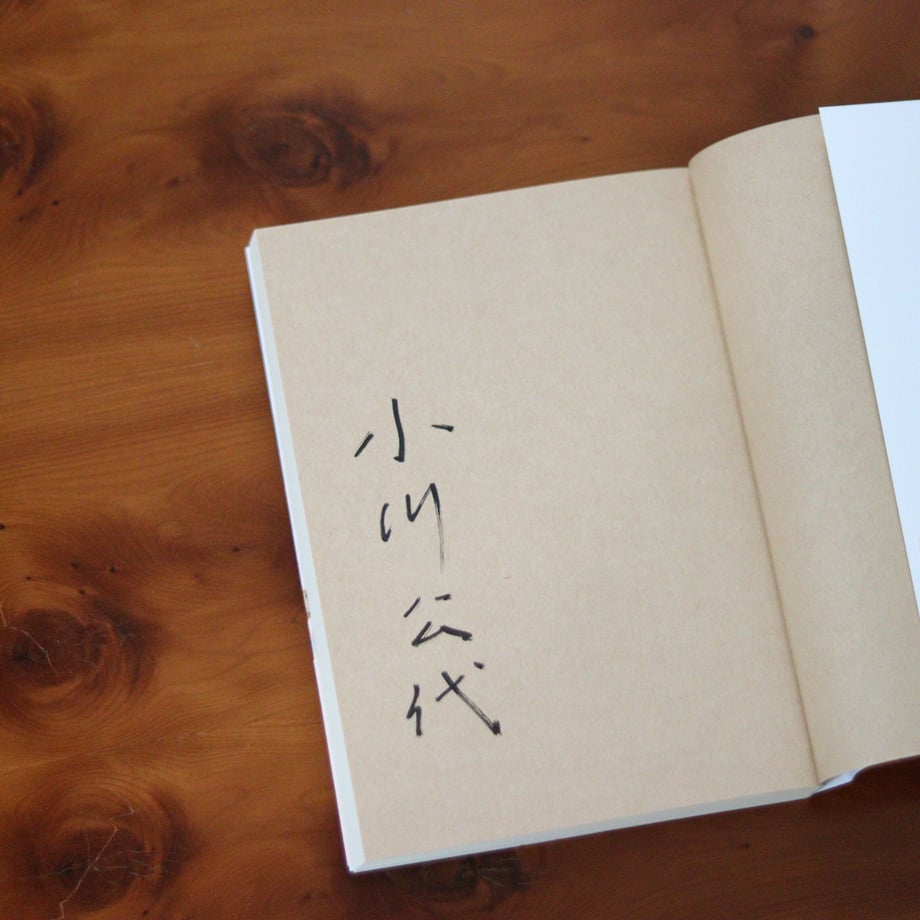 小川公代